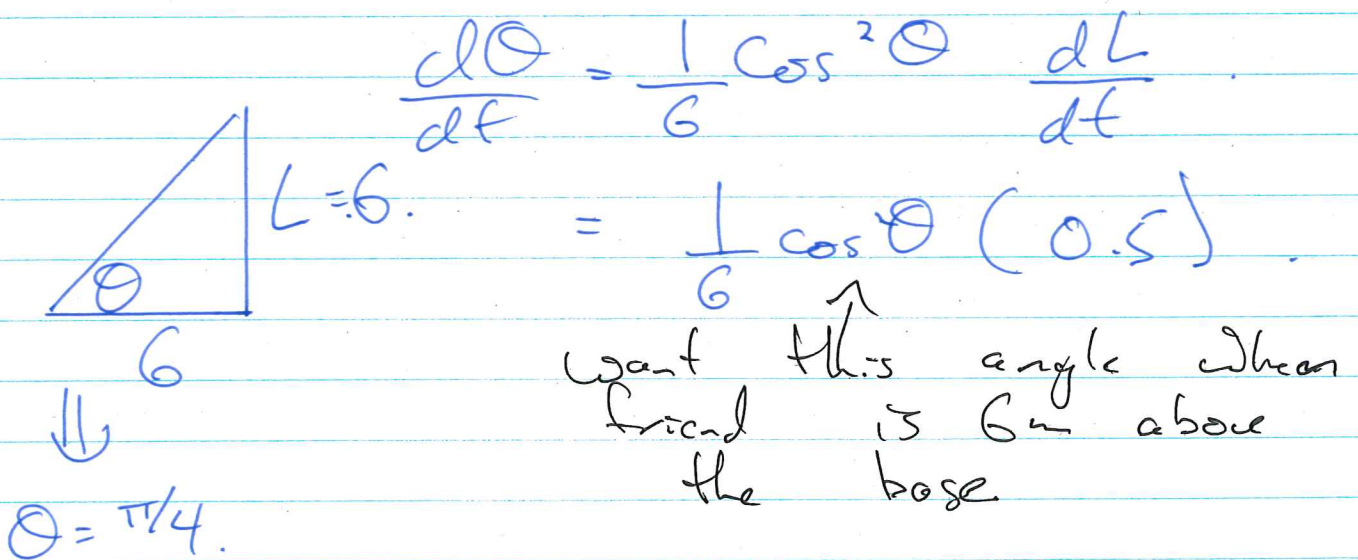 dθ/dt = 1/6 Cos²θ dL/dt.
L=6.
= 1/6 cos²θ (0.5).
θ
6
want this angle when
friend is 6m above
the base
⇓
θ = π/4.